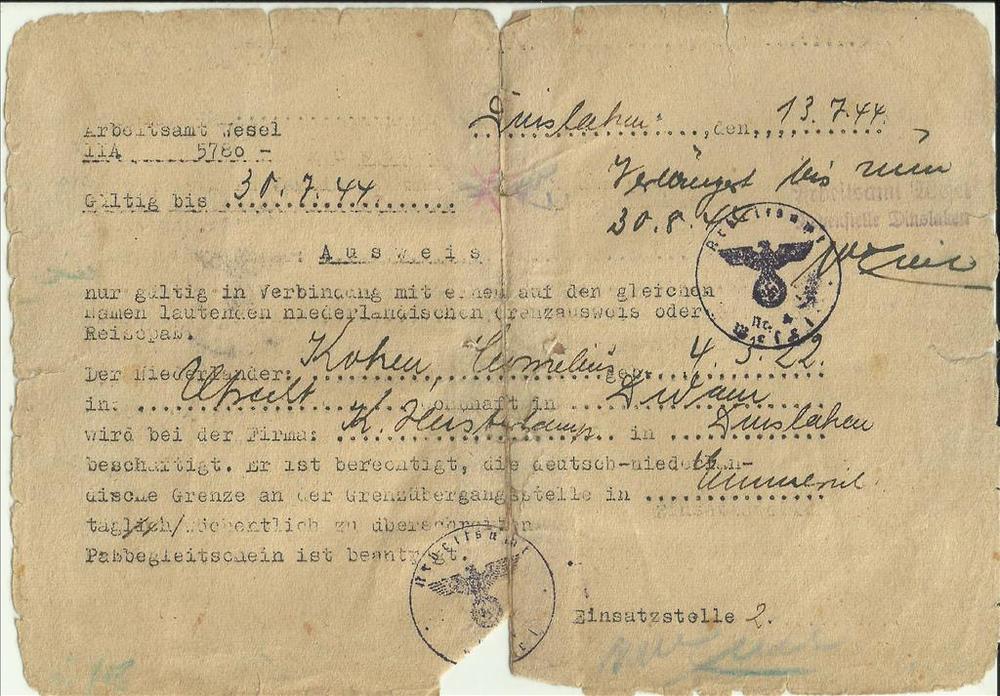 Arbeitsamt Wesel
IIA 5780 -
Dinslaken, den 13.7.44.
Gültig bis 30.7.44.
Verlängert bis zum
30.8.44
Arbeitsamt Wesel
Dinslaken
Ausweis
nur gültig in Verbindung mit einem auf den gleichen
Namen lautenden niederländischen Grenzausweis oder
Reisepaß.
Der Niederländer: Cornelius geb. 4. 22.
in: Utrecht wohnhaft in Didam
wird bei der Firma: in Dinslaken
beschäftigt. Er ist berechtigt, die deutsch-niederlän-
dische Grenze an der Grenzübergangsstelle in Emmerich
täglich/wöchentlich zu überschreiten
Paßbegleitschein ist beantragt.
Arbeitsamt
Arbeitsamt
Einsatzstelle 2.